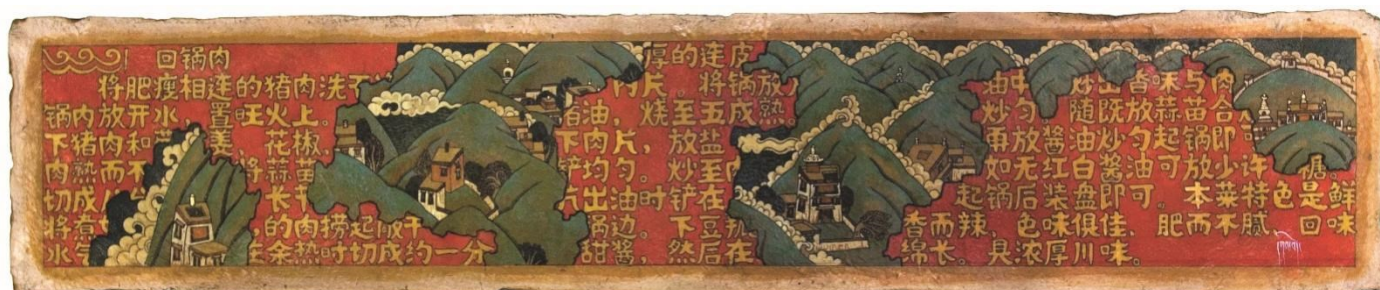 回锅肉
将肥瘦相连的猪肉洗干
锅内放开水，置旺火上。
下猪肉和 姜 花椒
肉熟而不 将蒜苗
切成 长
将煮 的肉捞起晾干
水 余热时切成约一分
厚的连皮
肉片。 将锅放
油，烧至五成熟
下肉片，放盐
铲均匀。炒至
出油时铲在
锅边。下豆瓣
甜酱，然后在
油中 香味与肉
炒匀，随既放蒜苗合
再放酱油炒匀起锅即
如无红白酱油可放少许 。
起锅后装盘即可。本菜特色是鲜
香而辣，色味俱佳、肥而不腻、回味
绵长。具浓厚川味。